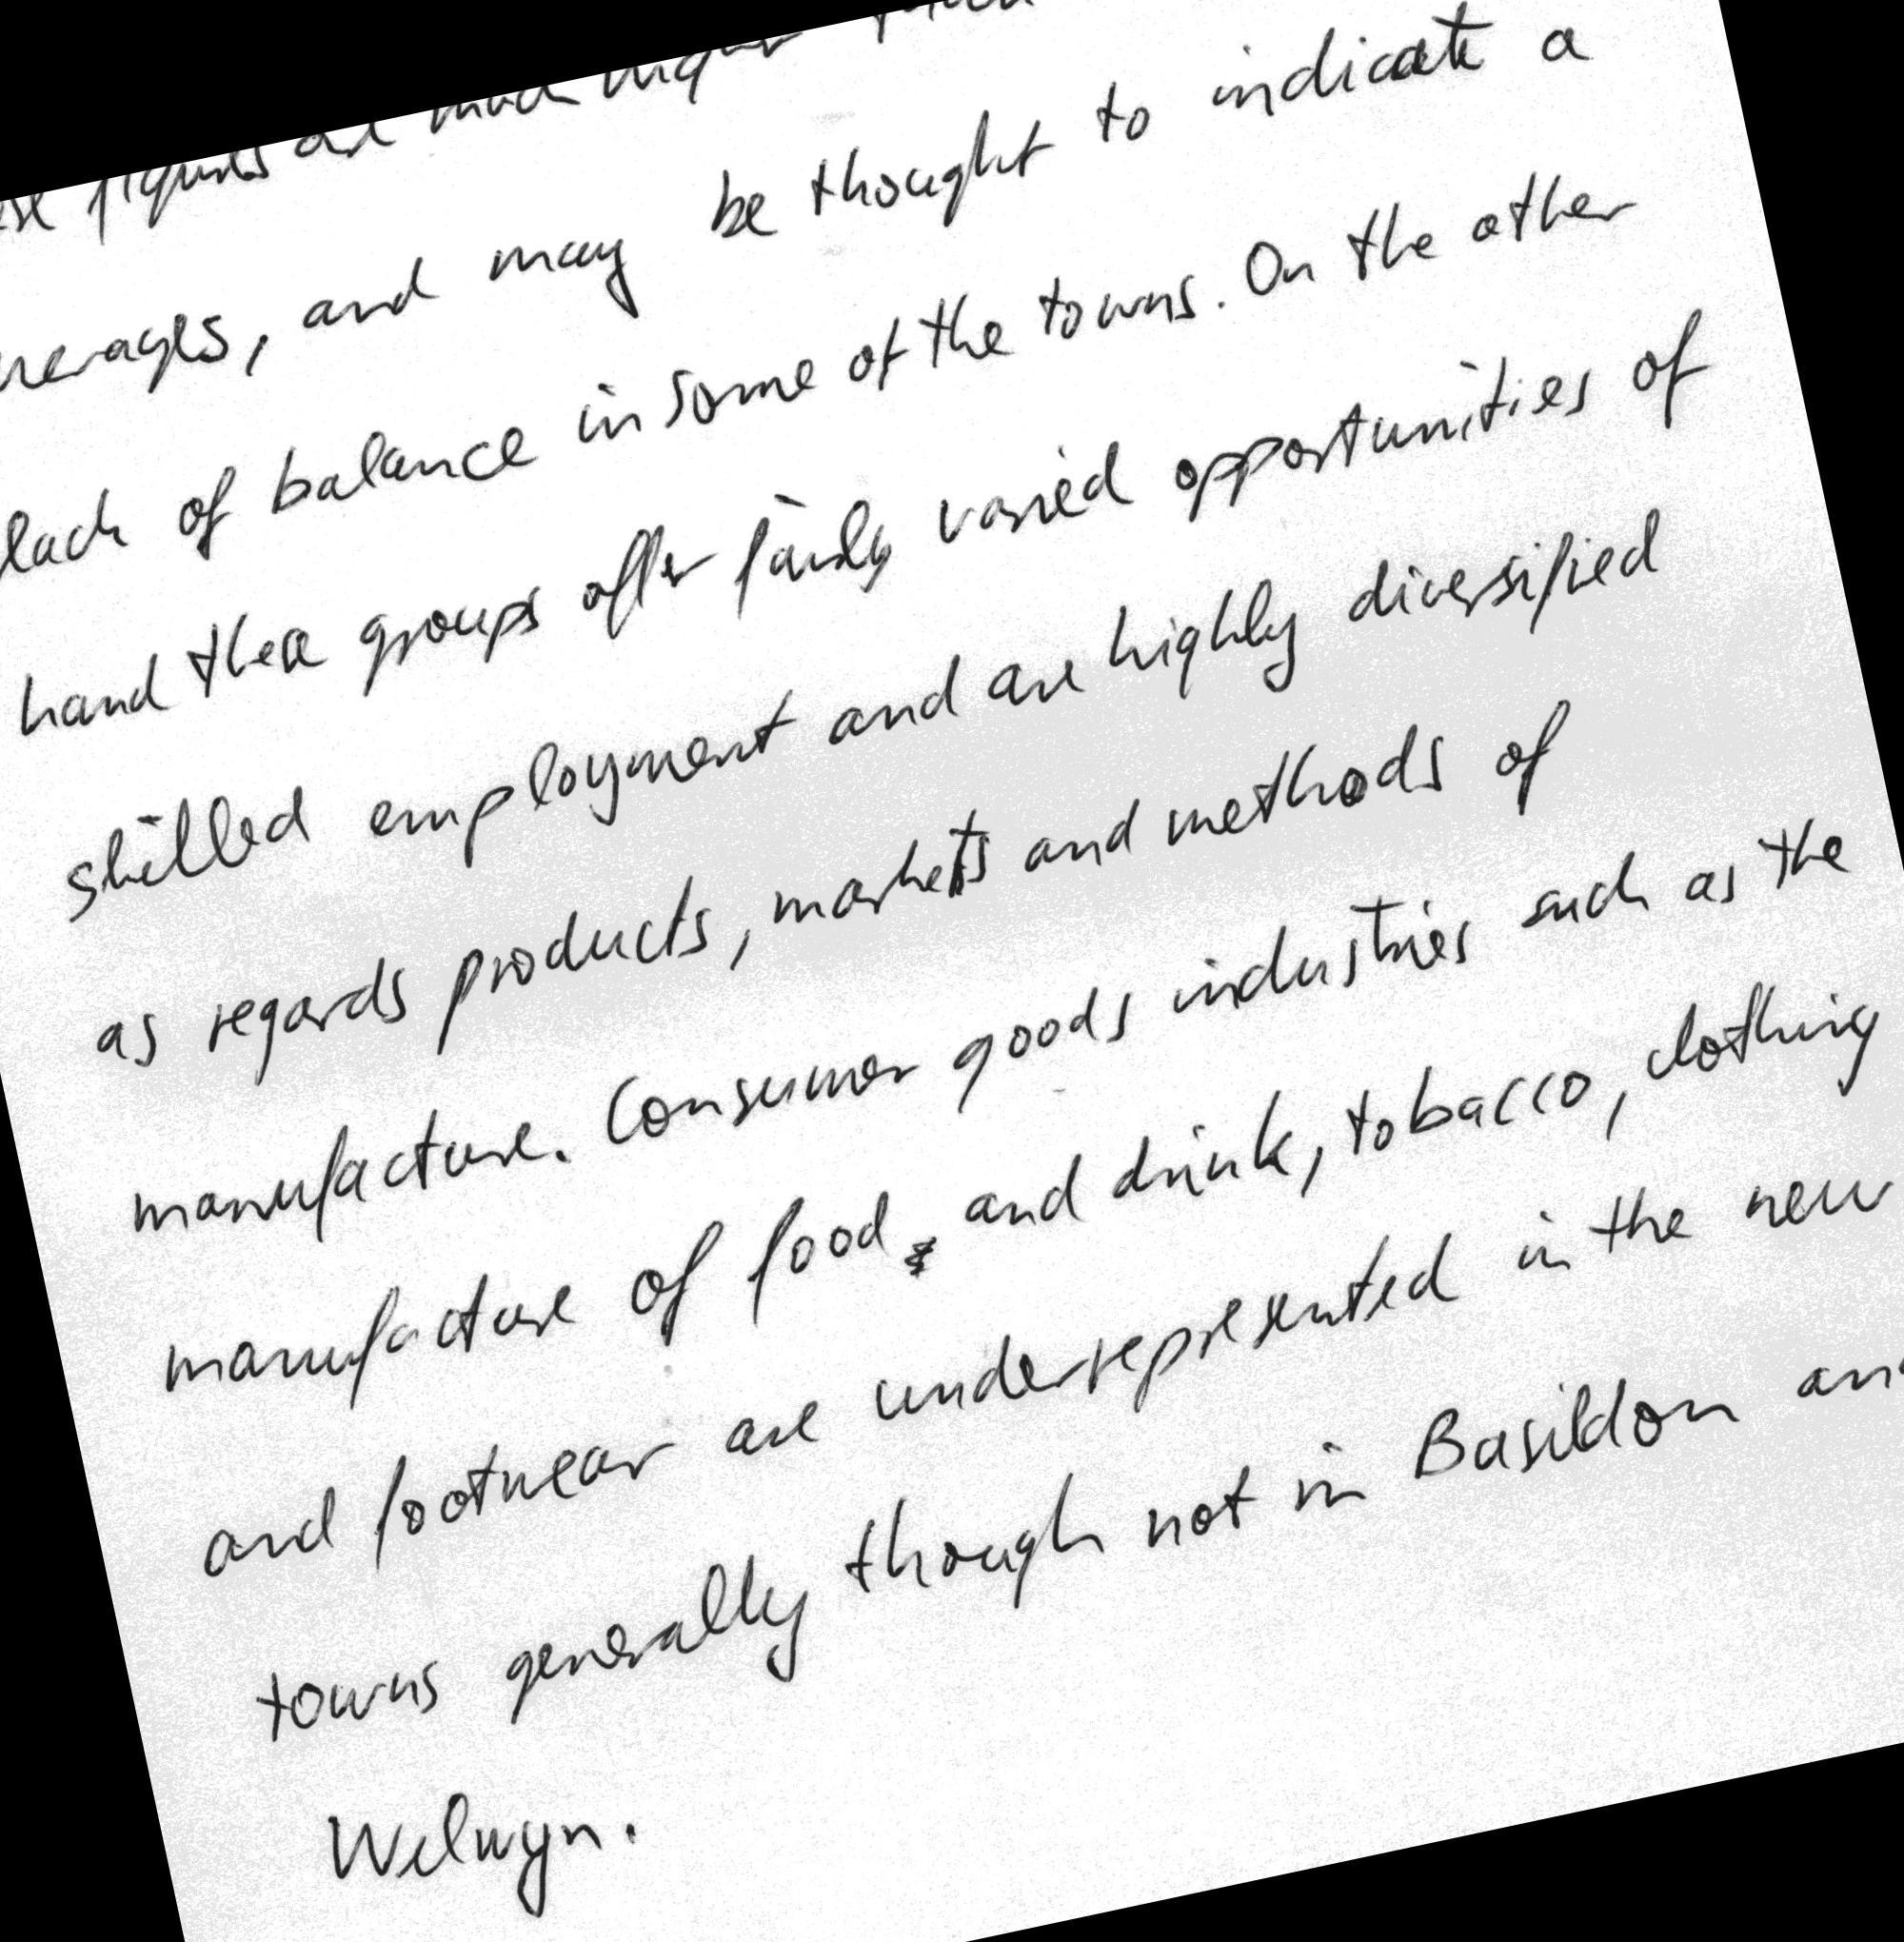 figures are much higher
and may be thought to indicate a
lack of balance in some of the towns. On the other
hand these groups offer fairly varied opportunities of
skilled employment and are highly diversified
as regards products, markets and methods of
manufacture. Consumer goods industries such as the
manufacture of food and drink, tobacco, clothing
and footwear are underrepresented in the new
towns generally though not in Basildon and
Welwyn.